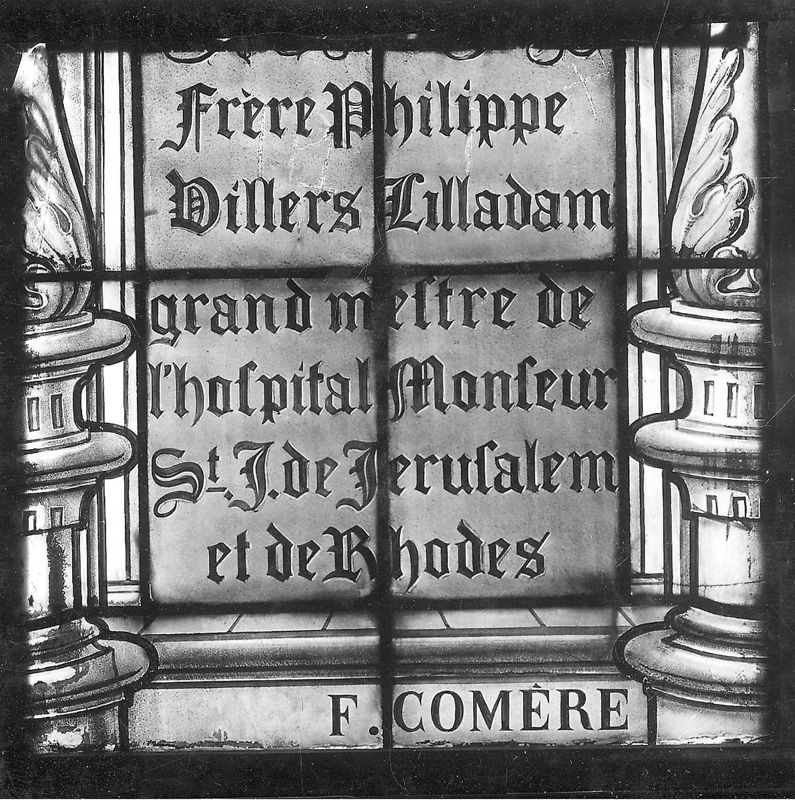 Frère Philippe
Villers Lilladam
grand meſtre de
l'hoſpital Monſeur
St. J. de Jeruſalem
et de Rhodes
F. COMÈRE